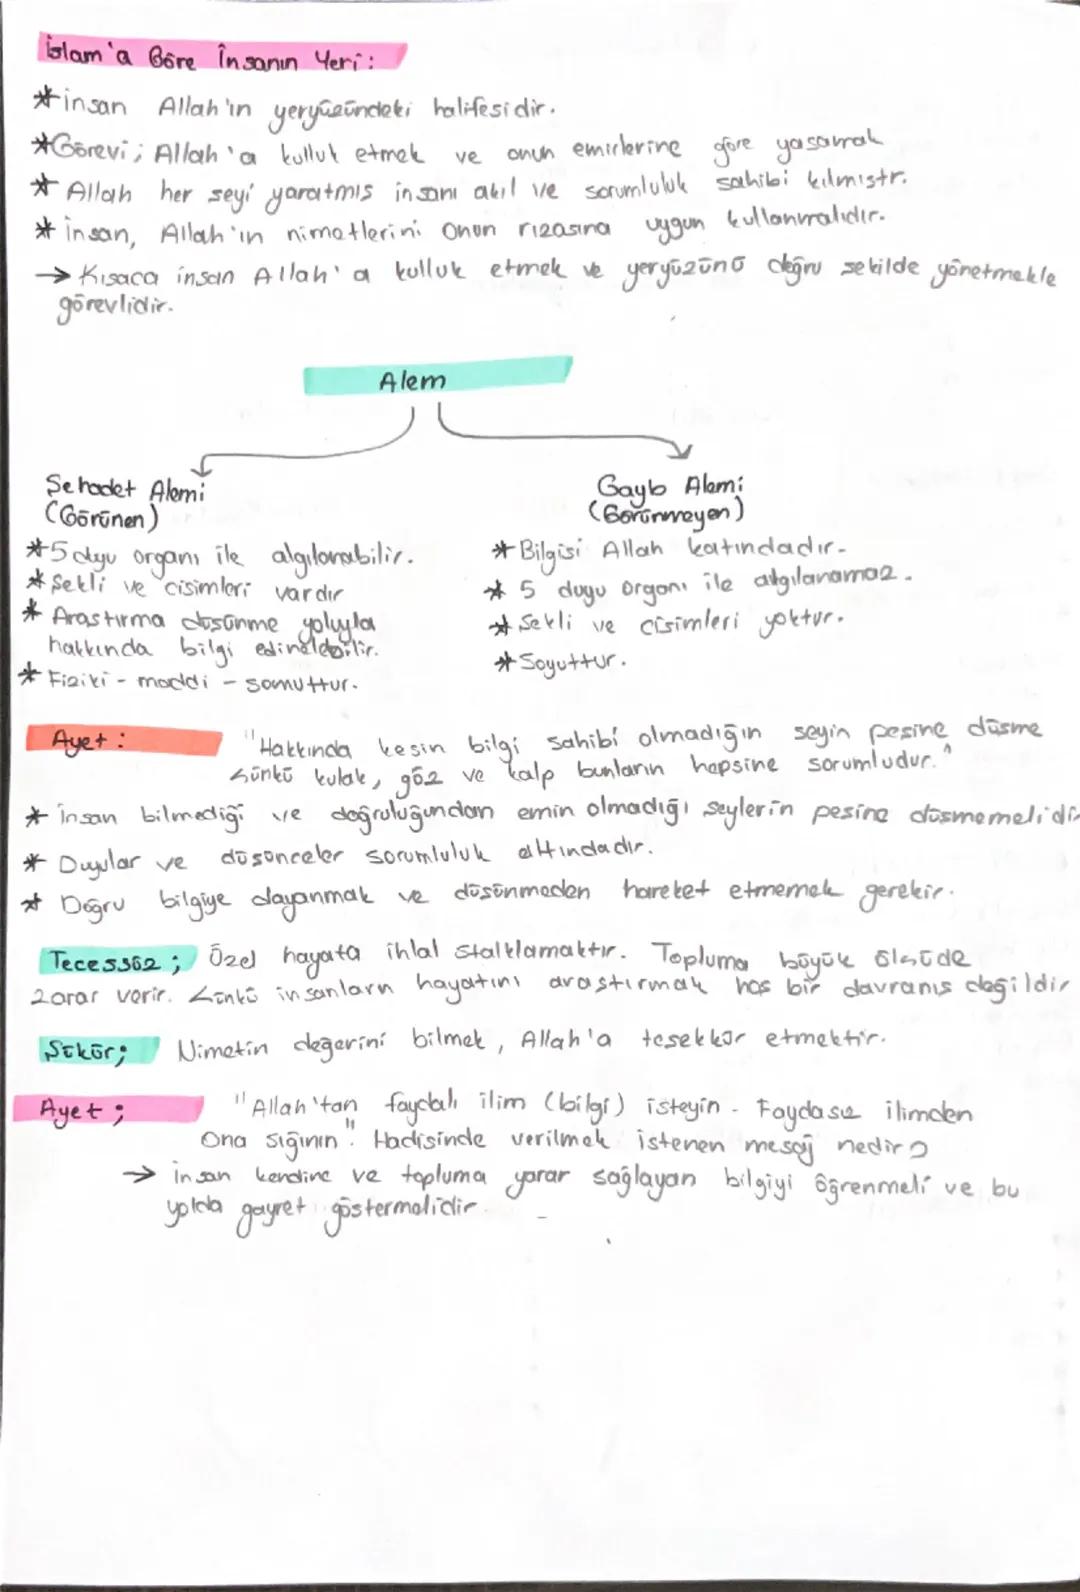 İslam'a Göre İnsanın Yeri:
* insan Allah'ın yeryüzündeki halifesidir.
* Görevi; Allah'a kulluk etmek ve onun emirlerine göre yasamak
* Allah her seyi yaratmıs insanı akıl ve sorumluluk sahibi kılmıstr.
* insan, Allah'ın nimetlerini Onun rızasına uygun kullanmalıdır.
→ Kısaca insan Allah'a kulluk etmek ve yeryüzünü doğru sekilde yönetmekle
görevlidir.
Alem
Sehadet Alemi
(Görünen)
Gayb Alemi
(Görünmeyen)
* 5 duyu organı ile algılanabilir.
* Sekli ve cisimleri vardır
* Arastırma düsünme yoluyla
hakkında bilgi edinelebilir.
* Fiziki - maddi - somuttur.
* Bilgisi Allah katındadır.
* 5 duyu organı ile algılanamaz.
* Sekli ve cisimleri yoktur.
* Soyuttur.
Ayet: "Hakkında kesin bilgi sahibi olmadığın seyin pesine düsme
çünkü kulak, göz ve kalp bunların hepsine sorumludur."
* insan bilmediği ve doğruluğundan emin olmadığı seylerin pesine düsmemelidir
* Duyular ve düsünceler sorumluluk altındadır.
* Doğru bilgiye dayanmak ve düsünmeden hareket etmemek gerekir.
Tecessüz; Özel hayata ihlal stalklamaktır. Topluma büyük ölçüde
zarar verir. Çünkü insanların hayatını arastırmak hos bir davranıs değildir
Sükür; Nimetin değerini bilmek, Allah'a tesekkür etmektir.
Ayet; "Allah'tan faydalı ilim (bilgi) isteyin. Faydasız ilimden
Ona sığının". Hadisinde verilmek istenen mesaj nedir?
→ insan kendine ve topluma yarar sağlayan bilgiyi öğrenmeli ve bu
yolda gayret göstermelidir